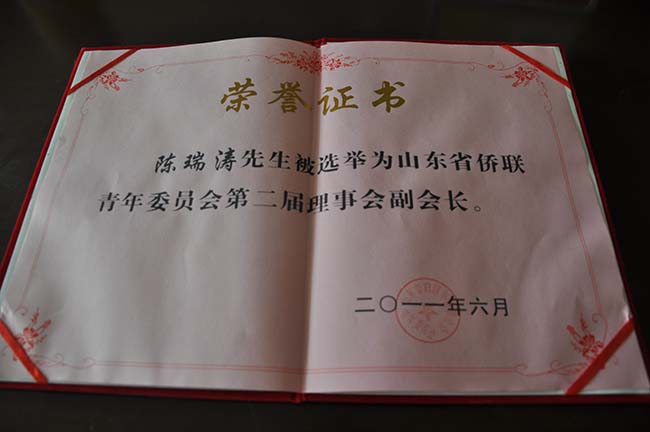 荣誉证书
陈瑞涛先生被选举为山东省侨联
青年委员会第二届理事会副会长。
二〇一一年六月